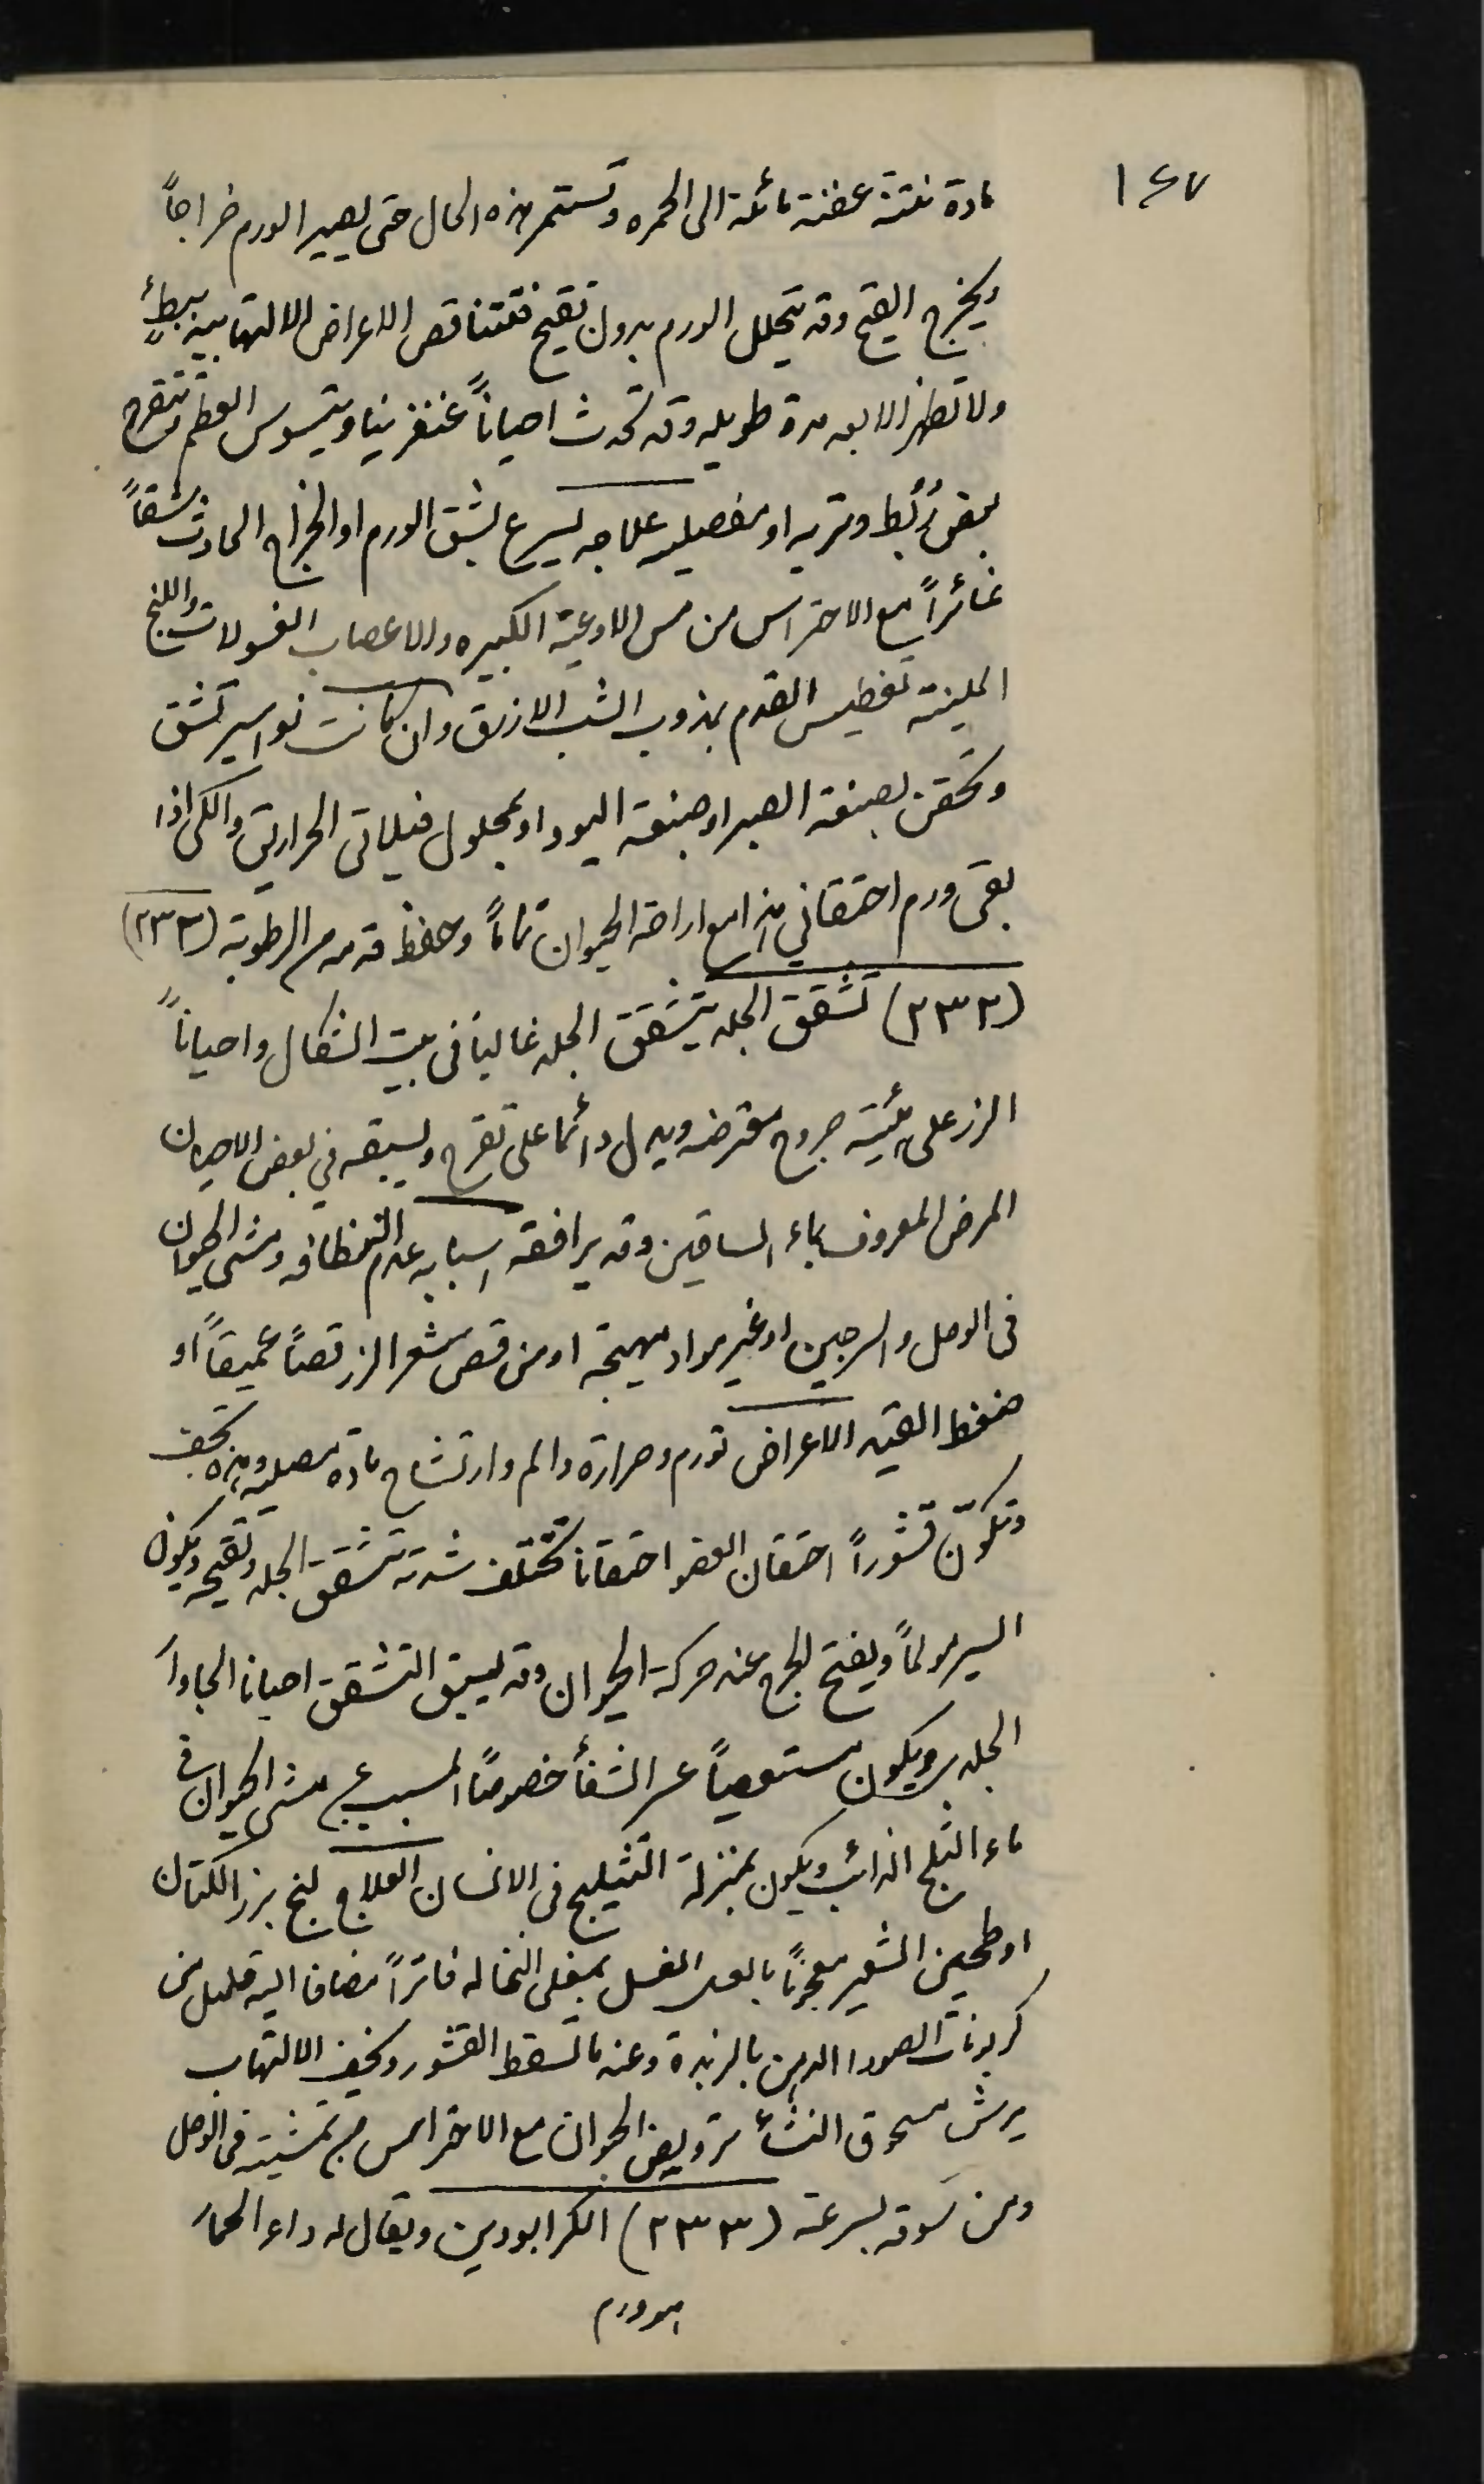 ١٤٧
مادة نتنة عفنة مائلة الى الحمره وتستمر هذه الحال حتى يصير الورم خراجاً
ويخرج القيح وقد يتحلل الورم بدون تقيح فتتناقص الاعراض الالتهابية ببطءٍ
ولا تظهر الا بعد مدة طويله وقد تحدث احياناً غنغرينا ويتسوس العظم وتتقرح
بعض رُبُط وتريه او مفصليه علاجه يسرع بشق الورم او الخراج الحادث شقاً
غائراً مع الاحتراس من مس الاوعية الكبيره والاعصاب الغسولات واللبخ
الملينة تغطيس القدم بمذوب الشب الازرق وان كانت نواسير تشق
وتحقن بصبغة الصبر او صبغة اليود او بمحلول فيلاتى الحرارتي والكى اذا
بقى ورم احتقاني هذا مع اراحة الحيوان تماماً وحفظ قدمه من الرطوبة (٢٣٢)
(٢٣٢) تشقق الجلد يتشقق الجلد غالبا فى بيت الشكال واحياناً
الزر على هيئية جروح مقرضه ويدل دائما على تقرح ويسبقه في بعض الاحيان
المرض المعروف بماء الساقين وقد يرافقه اسبابه عدم النظافه ومشى الحيوان
فى الوحل والسرجين او غير مواد مهيجة او من قص شعر الزر قصاً عميقاً او
ضغط القيد الاعراض تورم وحرارة والم وارتشاح مادة مصليه وهذه تجف
وتكوّن قشوراً احتقان العضو احتقانا تختلف شدته تشقق الجلد وتقيحه ويكون
السير مولماً ويفتح الجرح عند حركة الحيوان وقد يسبق التشقق احيانا
الجلد ويكون مستعصياً عسر الشفأ خصوصاً المسبب عن مشى الحيوان فى
ماء الثلج الذائب ويكون بمنزلة التثليج فى الانسان العلاج لبخ بزر الكتان
او طحين الشعير معجوناً بالعسل الغسل بمغلى النخاله فاتراً مضافا اليه قليل من
كربونات الصودا الدهن بالزبدة وعند ما تسقط القشور ويخف الالتهاب
يرش مسحوق النشأ ترويض الحيوان مع الاحتراس من تمشيته فى الوحل
ومن سَوقه بسرعة (٢٣٣) الكرابودين ويقال له داء
هو ورم